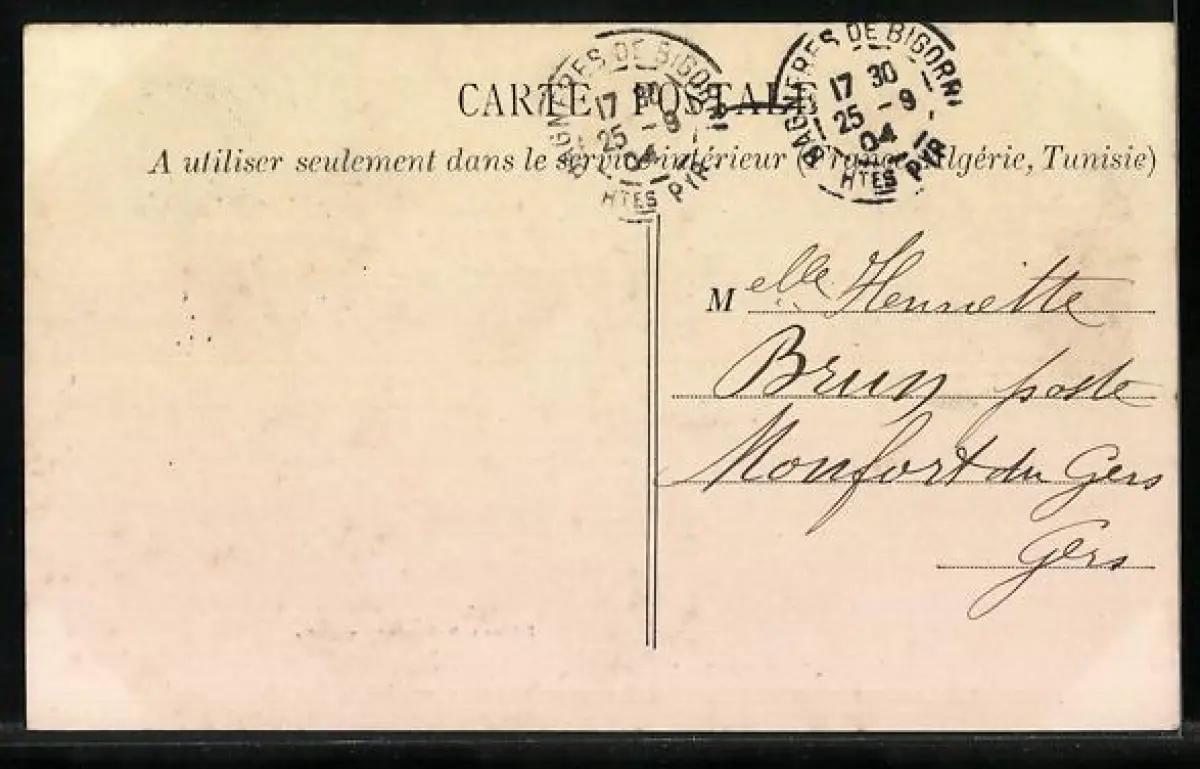 CARTE POSTALE
A utiliser seulement dans le service intérieur (France, Algérie, Tunisie)
BAGNERES DE BIGORRE
17 30
25 - 9
04
HTES PYR
BAGNERES DE BIGORRE
17 30
25 - 9
04
HTES PYR
Melle Henriette
Brun poste
Monfort du Gers
Gers